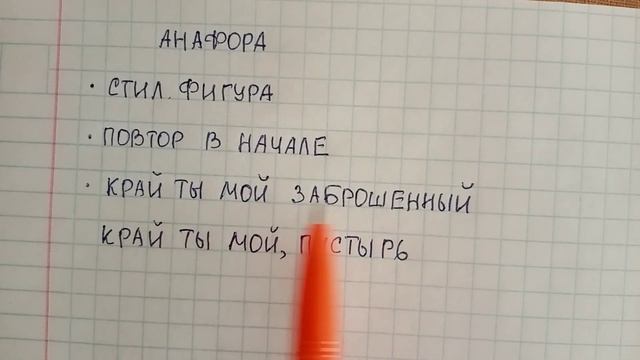 АНАФОРА
· СТИЛ. ФИГУРА
· ПОВТОР В НАЧАЛЕ
· КРАЙ ТЫ МОЙ ЗАБРОШЕННЫЙ
КРАЙ ТЫ МОЙ, ПУСТЫРЬ